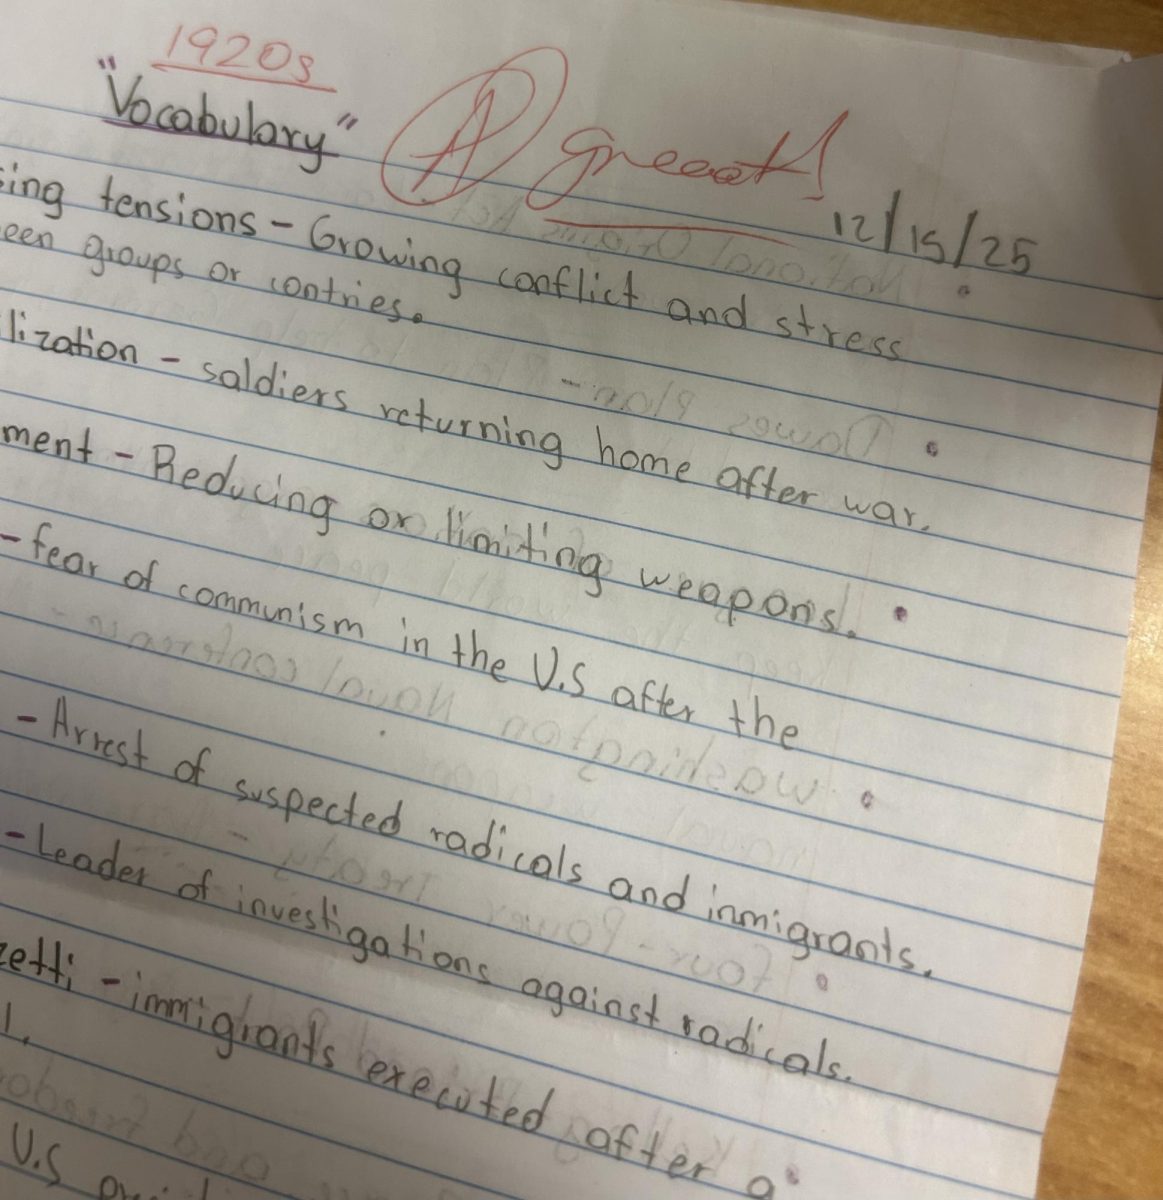 1920s
"Vocabulary"
A greeat!
12/15/25
ing tensions - Growing conflict and stress
een groups or contries.
lization - saldiers returning home after war.
ment - Reducing or limiting weapons.
- fear of communism in the U.S after the
- Arrest of suspected radicals and inmigrants.
- Leader of investigations against radicals.
zetti - immigrants executed after a
l.
U.S